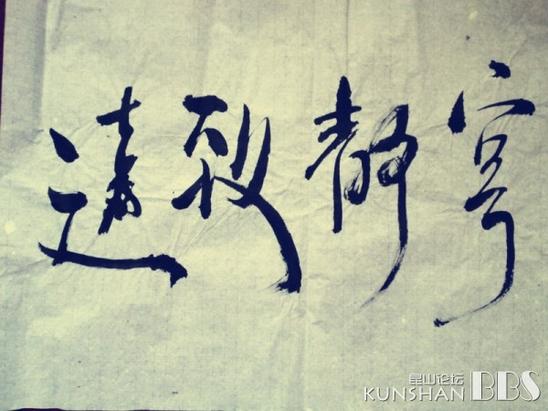 寧靜致遠
昆山论坛
KUNSHAN BBS